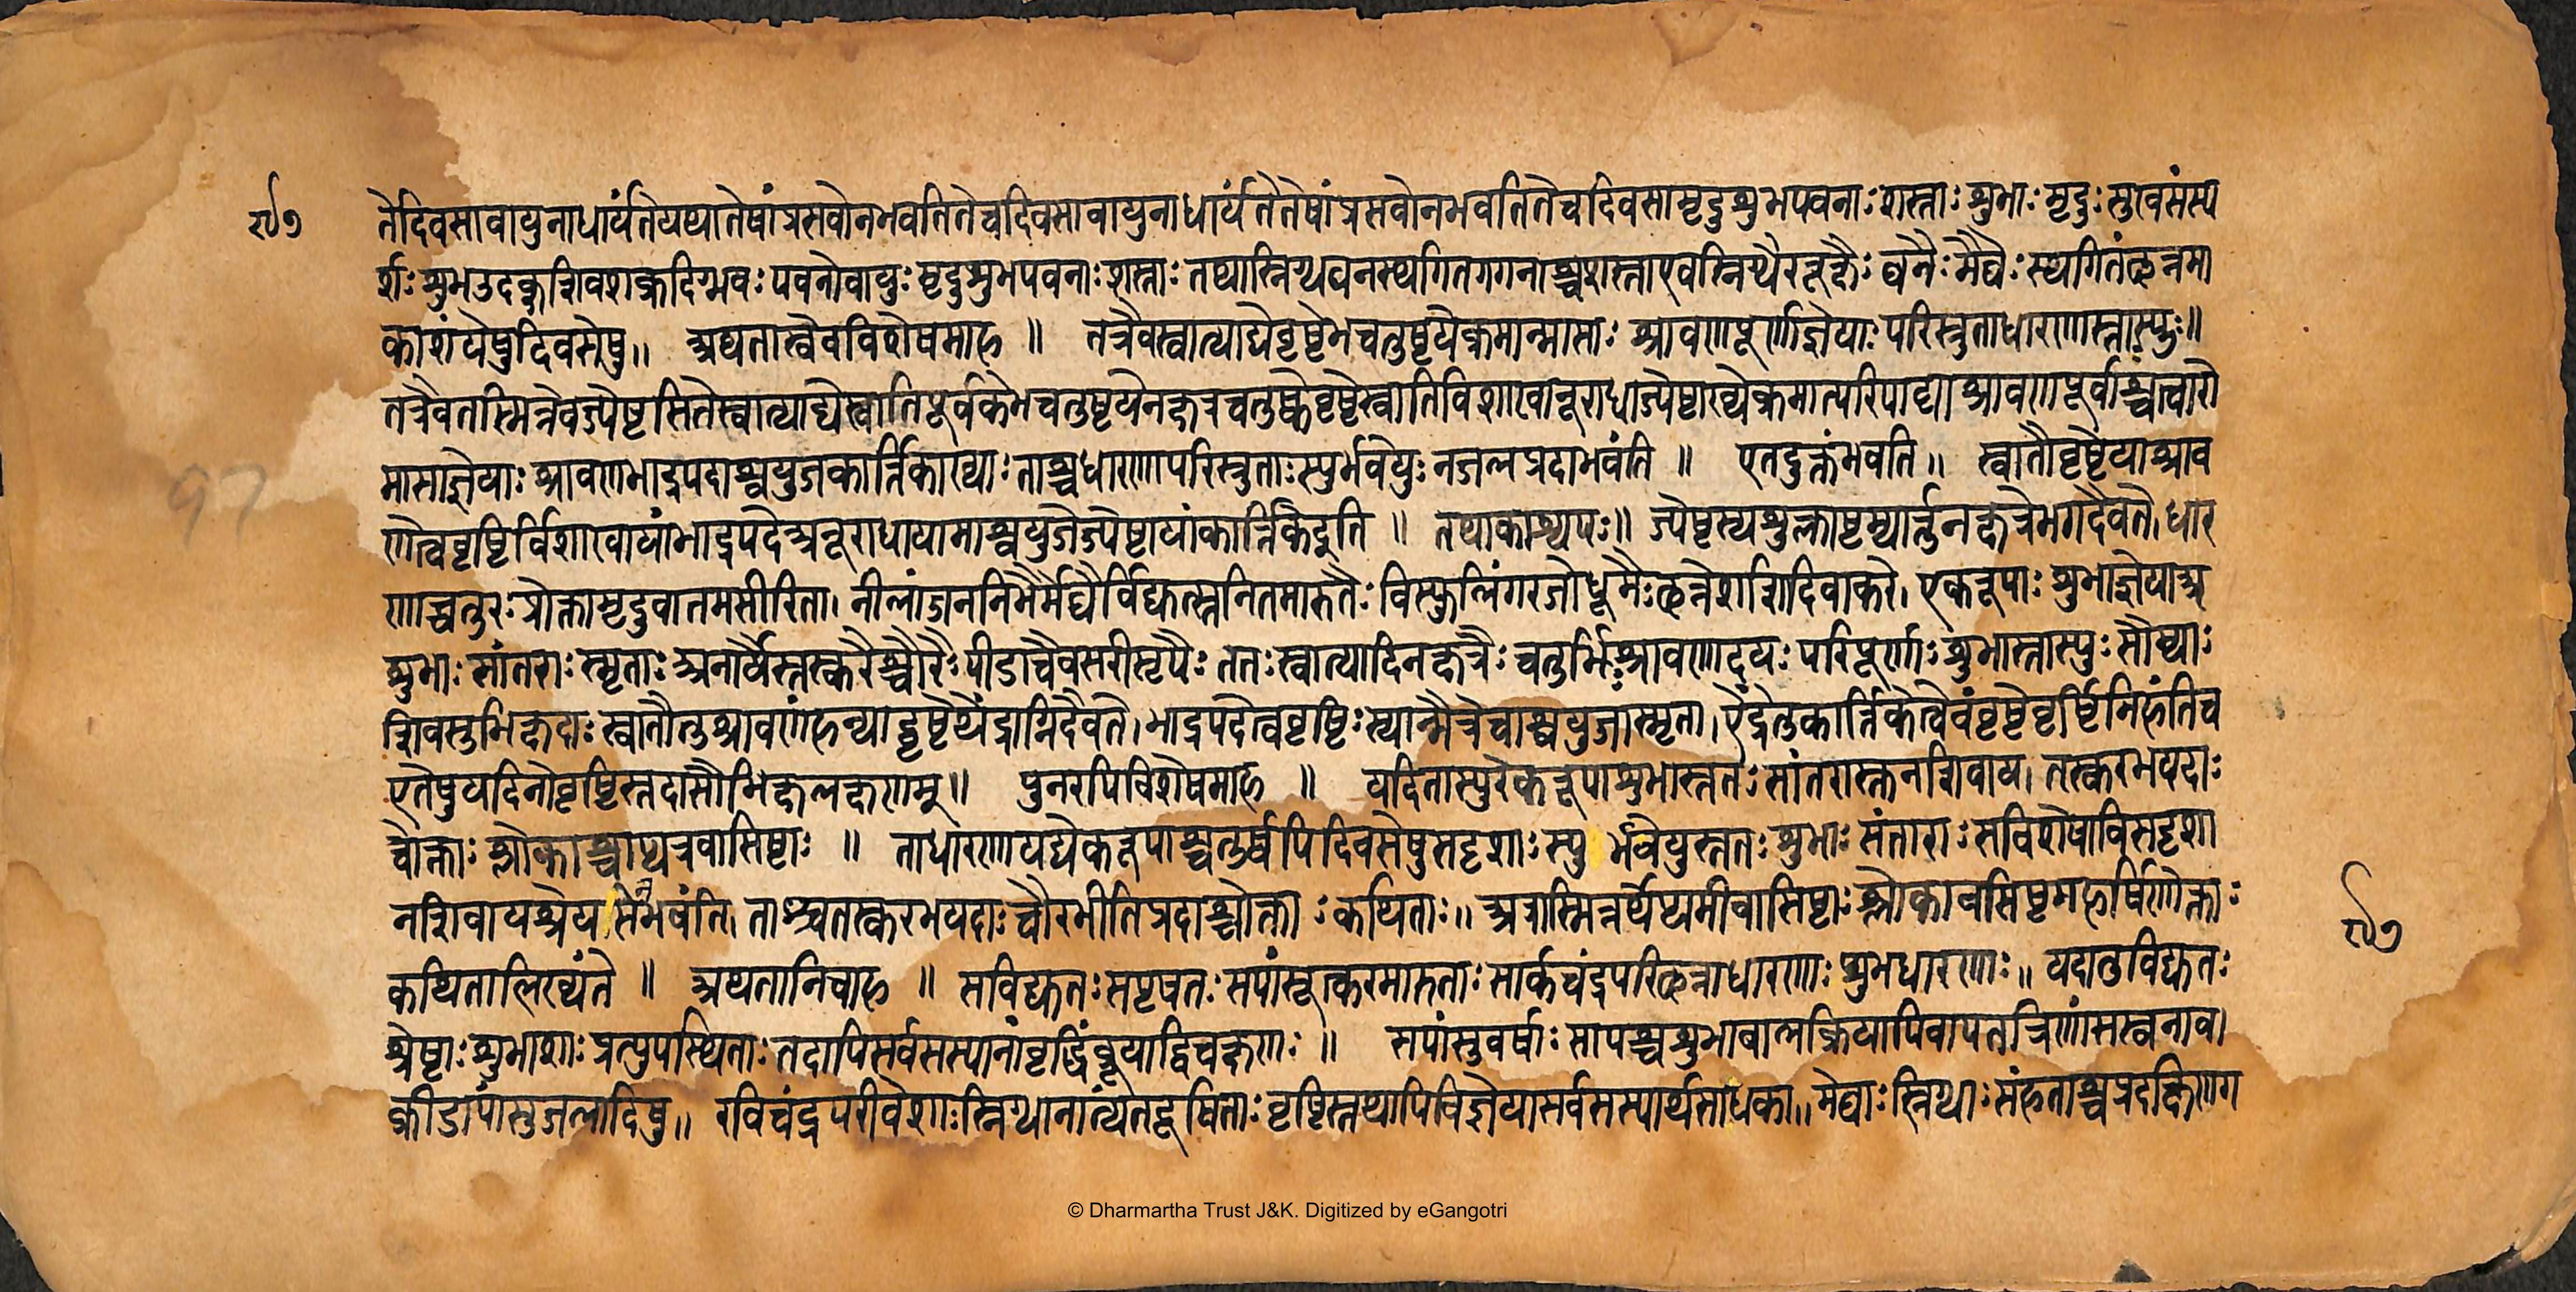 ९७ तेदिवसावायुनाधार्यंतेयथातेषांप्रसवोनभवतितेचदिवसावायुनाधार्यंतेतेषांप्रसवोनभवतितेचदिवसामृदुशुभपवनाःशस्ताःशुभाःमृदुःसुखसंस्प
र्शःशुभउदक्शिवशक्रदिग्भवःपवनोवायुःमृदुशुभपवनाःशस्ताःतथास्निग्धघनस्थगितगगनाश्चशस्ताएवस्निग्धैररूक्षैःघनैःमेघैःस्थगितंछन्नमा
काशंयेषुदिवसेषु॥ अथतास्वेवविशेषमाह ॥ तत्रैवस्वात्याद्येवृष्टेभचतुष्टयेक्रमान्मासाः श्रावणपूर्वाज्ञेयाःपरिस्रुताधारणास्तास्युः॥
तत्रैवतास्मिन्नेवज्येष्ठसितेस्वात्याद्येस्वातिपूर्वकेभचतुष्टयेनक्षत्रचतुष्केवृष्टेस्वातिविशाखानूराधाज्येष्ठाख्येक्रमात्परिपाट्याश्रावणपूर्वाश्चत्वारो
मासाज्ञेयाःश्रावणभाद्रपदाश्वयुजकार्त्तिकाख्याःताश्चधारणापरिस्रुताःस्युर्भवेयुःनजलप्रदाभवंति ॥ एतदुक्तंभवति॥ स्वातौवृष्टेयाश्राव
णेत्ववृष्टिर्विशाखायांभाद्रपदेअनूराधायामाश्वयुजेज्येष्ठायांकार्त्तिकेइति ॥ तथाकाश्यपः॥ ज्येष्ठस्यशुक्लाष्टम्यार्त्तुनक्षत्रेभगदैवते।धार
णाश्चतुरःप्रोक्तामृदुवातमसीरिता। नीलांजननिभैर्मेघैर्विद्युत्स्तनितमारुतैःविस्फुलिंगरजोधूमैःछन्नेशशिदिवाकरे। एकरूपाः शुभाज्ञेयाअ
शुभाः सांतराः स्मृताःअनार्यैस्तस्करैश्चौरैःपीडाचैवसरीसृपैः ततःस्वात्यादिनक्षत्रैः चतुर्भिःश्रावणादयः परिपूर्णाःशुभास्तास्युः सौम्याः
शिवसुभिक्षदाः स्वातौतुश्रावणंहन्याद्वृष्टेथैंद्राग्निदैवते।भाद्रपदेत्ववृष्टिःस्यान्मैत्रेचाश्वयुजास्मृता।ऐंद्रेतुकार्त्तिकेत्वेवंवृष्टेवृष्टिंनिहंतिच
एतेषुयदिनोवृष्टिस्तदासौभिक्षलक्षणम्॥ पुनरपिविशेषमाह ॥ यदितास्युरेकरूपाशुभास्ततः सांतरास्तनशिवाय। तस्करभयदाः
चोक्ताः श्लोकाश्चाप्यत्रवासिष्ठाः ॥ ताधारणायद्येकरूपाश्चतुर्ष्वपिदिवसेषुसदृशाःस्यु र्भवेयुस्ततः शुभाः संताराः सविशेषाविसदृशा
नशिवायश्रेयसेभवंति। ताश्चतस्करभयदाः चौरभीतिप्रदाश्चोक्ताःकथिताः॥ अत्रास्मिन्नर्थेप्यमीवासिष्ठाः श्लोकावसिष्ठमहर्षिणोक्ताः
कथितालिख्यंते ॥ अथतानिचाह ॥ सविद्युतःसपृषतःसपांसूत्करमारुताः सार्कचंद्रपरिछन्नाधारणाः शुभधारणाः॥ यदातुविद्युतः
श्रेष्ठाःशुभाशाः प्रत्युपस्थिताःतदापिसर्वसस्यानांवृद्धिंब्रूयाद्विचक्षणः ॥ सपांसुवर्षाः सापश्चशुभाबालक्रियापिवापतत्रिणांसस्वनाव।
क्रीडापांसुजलादिषु॥ रविचंद्रपरीवेशाःस्निग्धानात्यंतदूषिताःवृष्टिस्तथापिविज्ञेयासर्वसस्यार्थसाधका॥मेघाःस्निग्धाःसंहताश्चप्रदक्षिणग
९७
97
© Dharmartha Trust J&K. Digitized by eGangotri